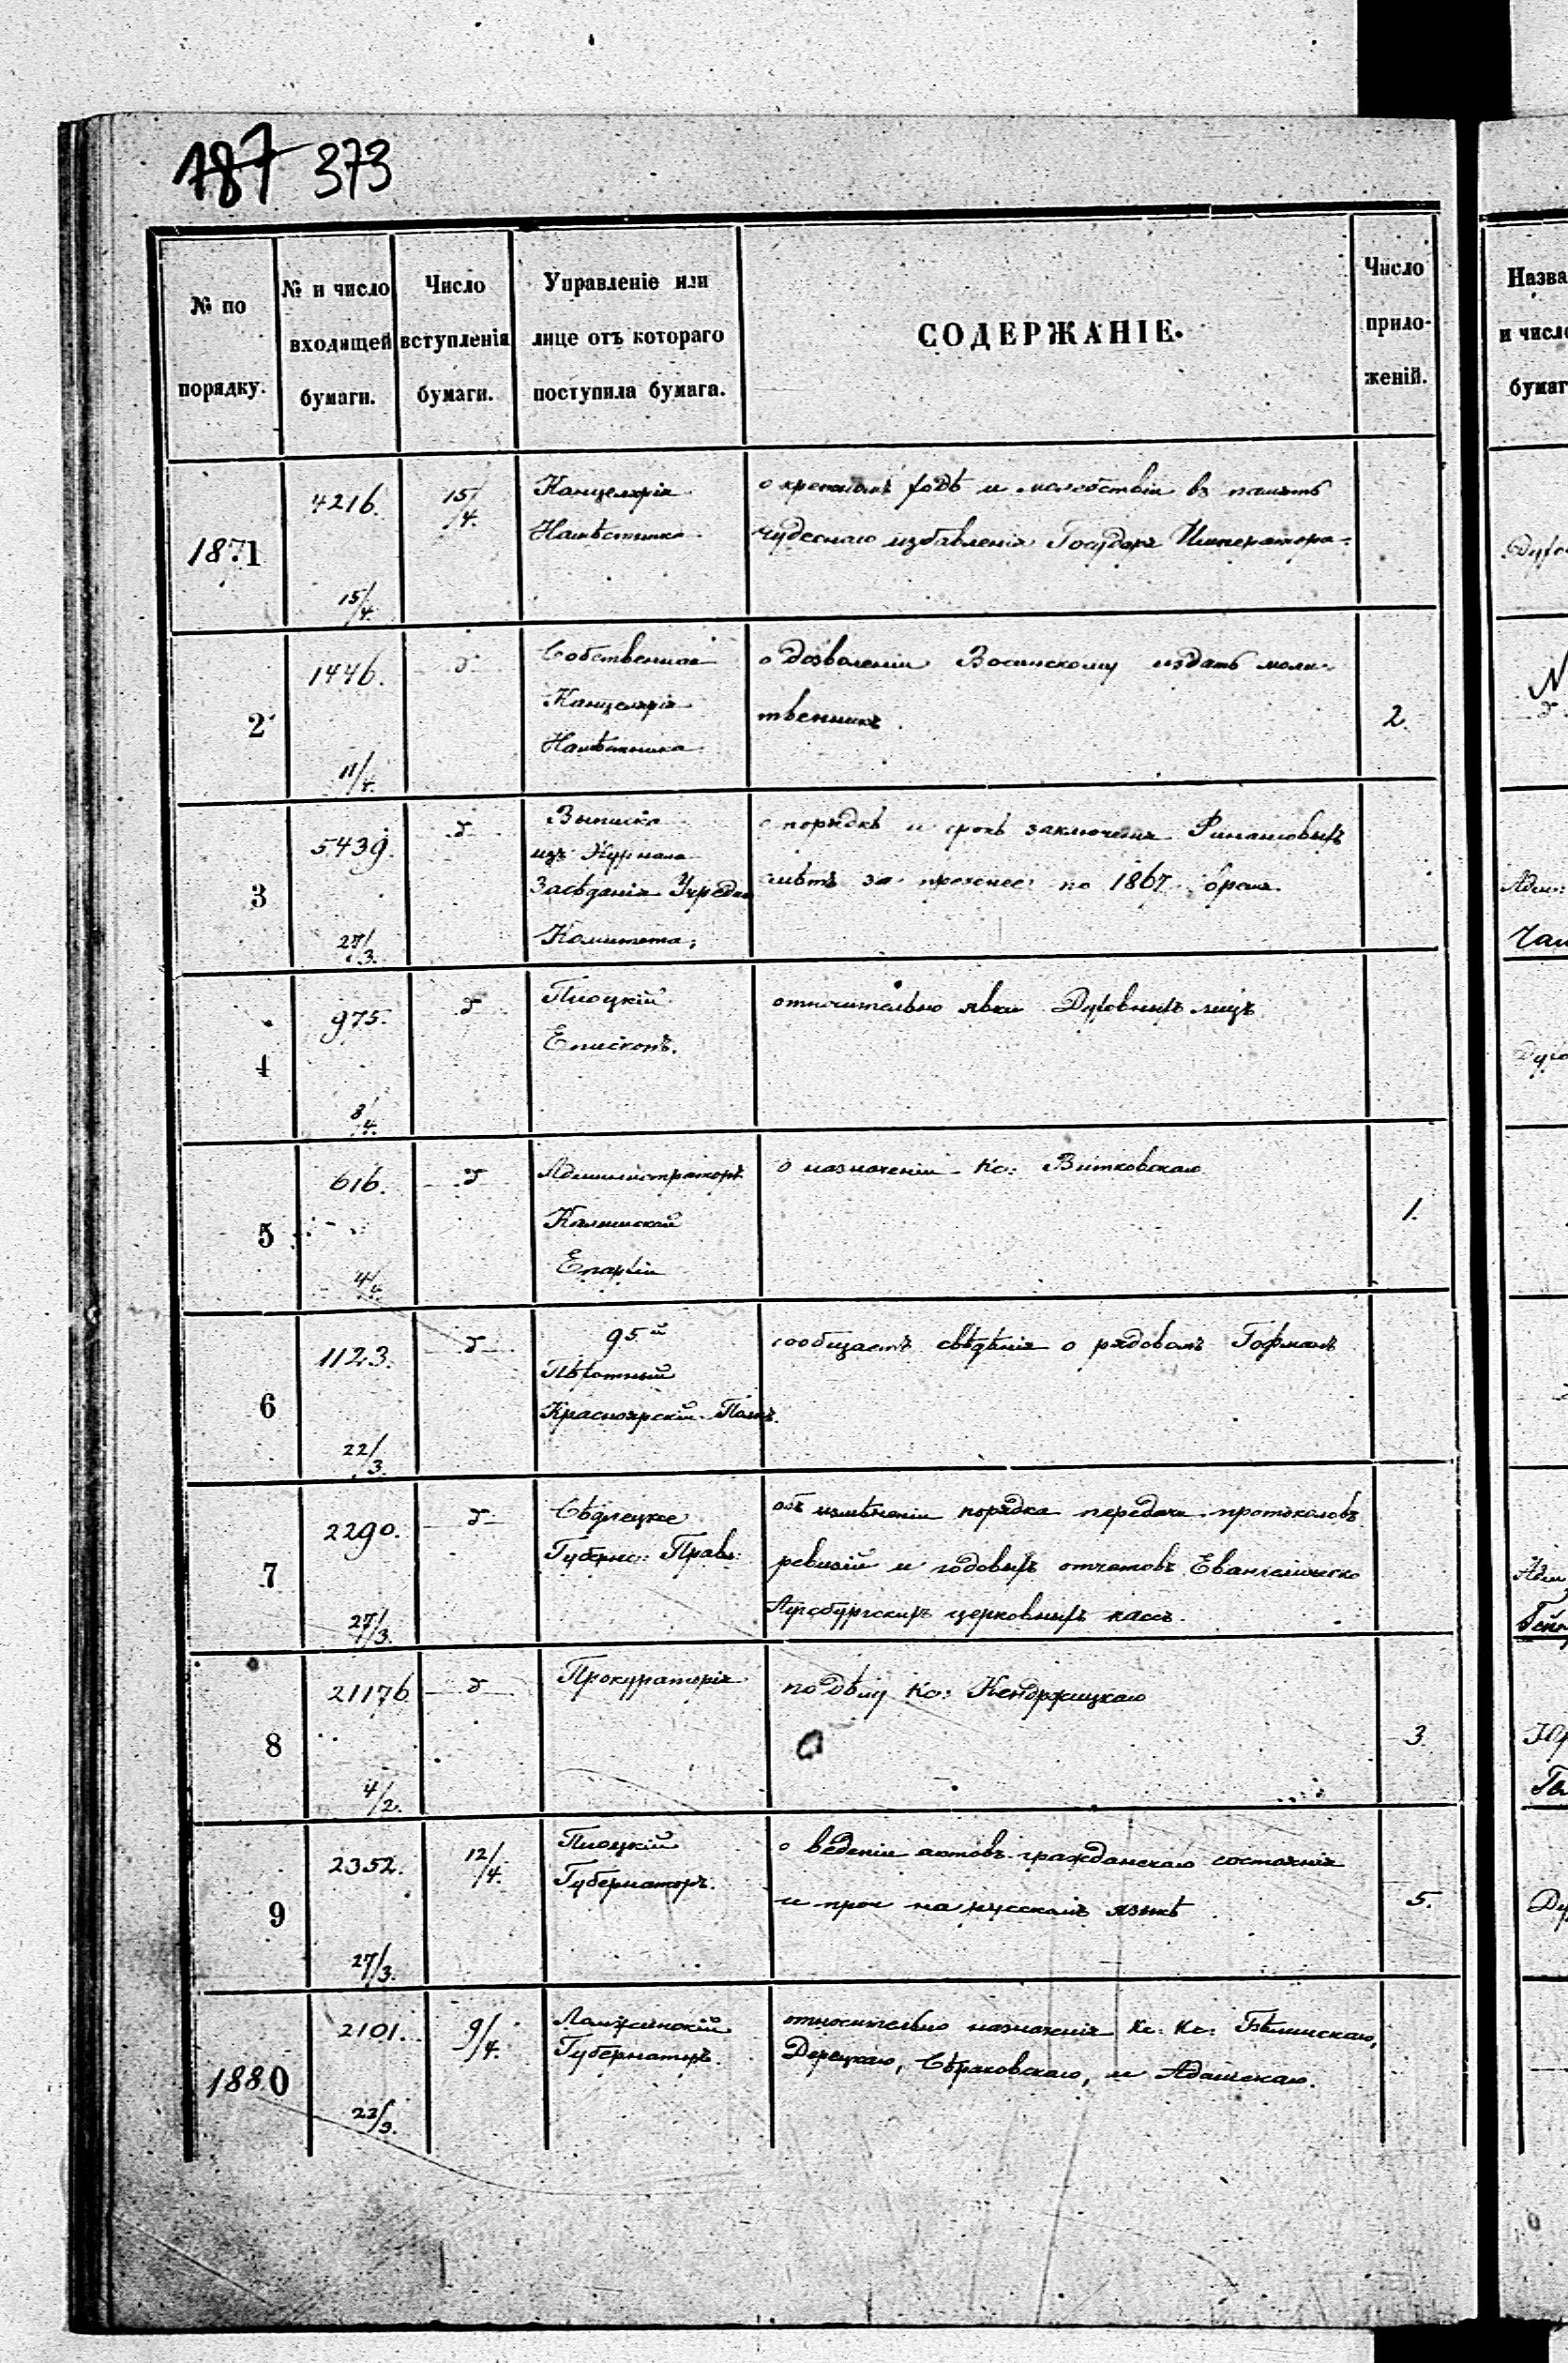 187 373
№ по
порядку.
№ и число
входищей
бумаги.
Число
вступленія
бумаги.
Управленіе или
лице отъ котораго
поступила бумага.
СОДЕРЖАНІЕ.
Число
прило-
женій.
1871
4216.
15/4.
15/4.
Канцелярія
Намѣстника
о крестномъ ходѣ и молебствіи въ память
чудеснаго избавленія Государя Императора.
2
1446.
11/4.
Собственная
Канцелярія
Намѣстника
о дозволеніи Восинскому издать моли-
твенникъ.
2.
3
5439.
27/3.
Выписка
изъ Журнала
Засѣданія Учредит
Комитета.
о порядкѣ и срокѣ заключенія Финансовыхъ
смѣтъ за прежнее по 1867 время.
4
975.
8/4.
Плоцкій
Епископъ.
относительно явки Духовныхъ лицъ
5
616.
4/4.
Администраторъ
Калишской
Епархіи
о назначеніи Кс: Витковскаго
1.
6
1123.
22/3.
95й
Пѣхотный
Красноярскій Полкъ.
сообщаетъ свѣдѣнія о рядовомъ Гофманъ
7
2290.
27/3.
Сѣдлецкое
Губернс: Правл:
объ измѣненіи порядка передачи протоколовъ
ревизій и годовыхъ отчетовъ Евангелическо
Аугсбургскихъ церковныхъ кассъ.
8
21176
4/2.
Прокураторія
по дѣлу Кс: Кендржицкаго
3
9
2352.
27/3.
12/4.
Плоцкій
Губернаторъ.
о веденіи актовъ гражданскаго состоянія
и проч на русскомъ языкѣ
5.
1880
2101.
23/3.
9/4.
Ломжинскій
Губернаторъ.
относительно назначенія Кс: Кс: Бѣлинскаго,
Сѣраковскаго, и Адамскаго.
Назва
и число
бумаг